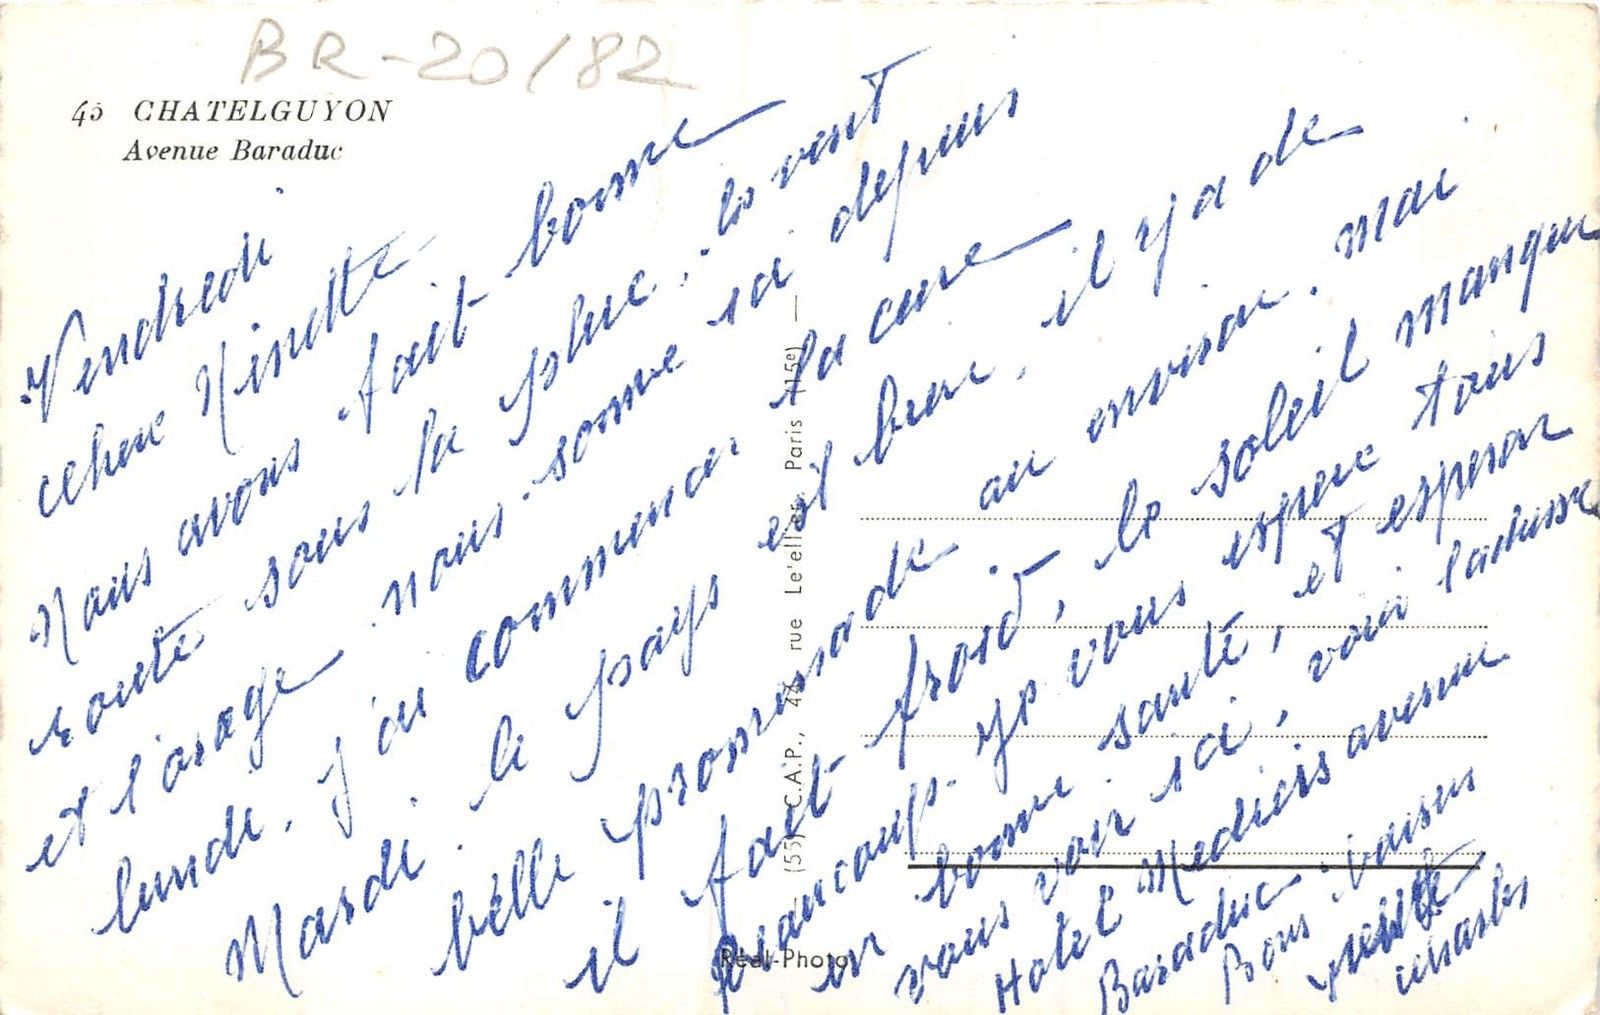 BR-20/82
45 CHATELGUYON
Avenue Baraduc
Vendredi
chere Ninette
Nous avons fait bonne
route sous la pluie, le vent
et l'orage nous somme ici depuis
lundi, j'ai commencer la cure
Mardi. le pays est bien, il y a de
belle promenade au environ. mai
il fait froid, le soleil manque
beaucoup. Je vous espere tous
en bonne santé, et esperon
vous voir ici, voici l'adresse
Hotel Medicis avenue
Baraduc
Bons baisers
charles
(55) C.A.P., 44 rue Le'eller Paris (15e) —
Real-Photo